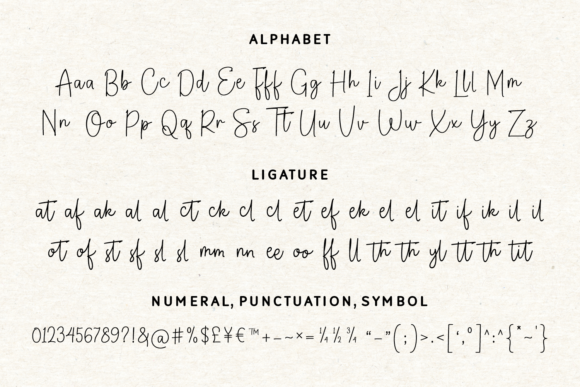 ALPHABET
Aaa Bb Cc Dd Ee Fff Gg Hh Ii Jj Kk Lll Mm
Nn Oo Pp Qq Rr Ss Ttt Uu Vv Ww Xx Yy Zz
LIGATURE
at af ak al al ct ck cl cl et ef ek el el it if ik il il
ot of st sf sl sl mm nn ee oo ff ll th th yl tt th tit
NUMERAL, PUNCTUATION, SYMBOL
0123456789?!&@#%$£¥€™+–~×=¼½¾“–”(;)>.<[‘,°]^:^{*~'}